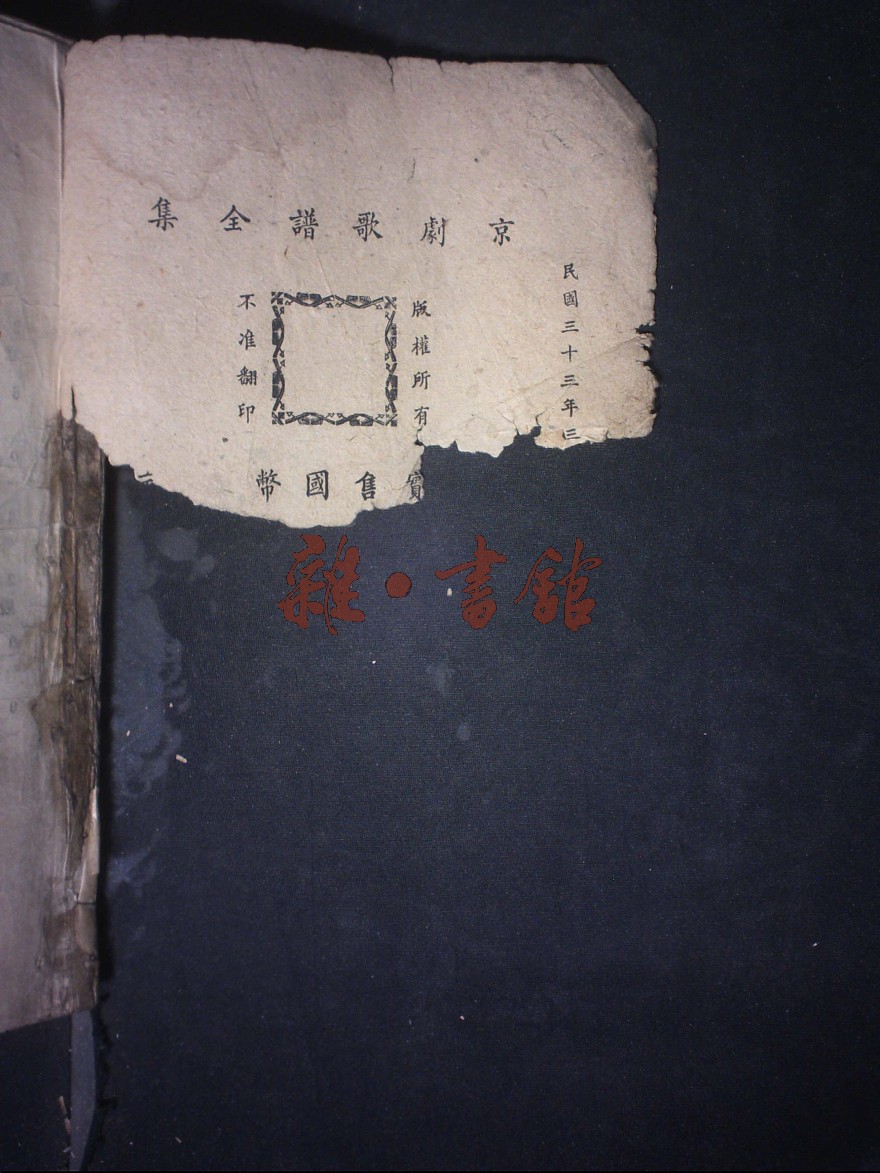 京劇歌譜全集
民國三十三年三
版權所有
不准翻印
實售國幣
雜·書館